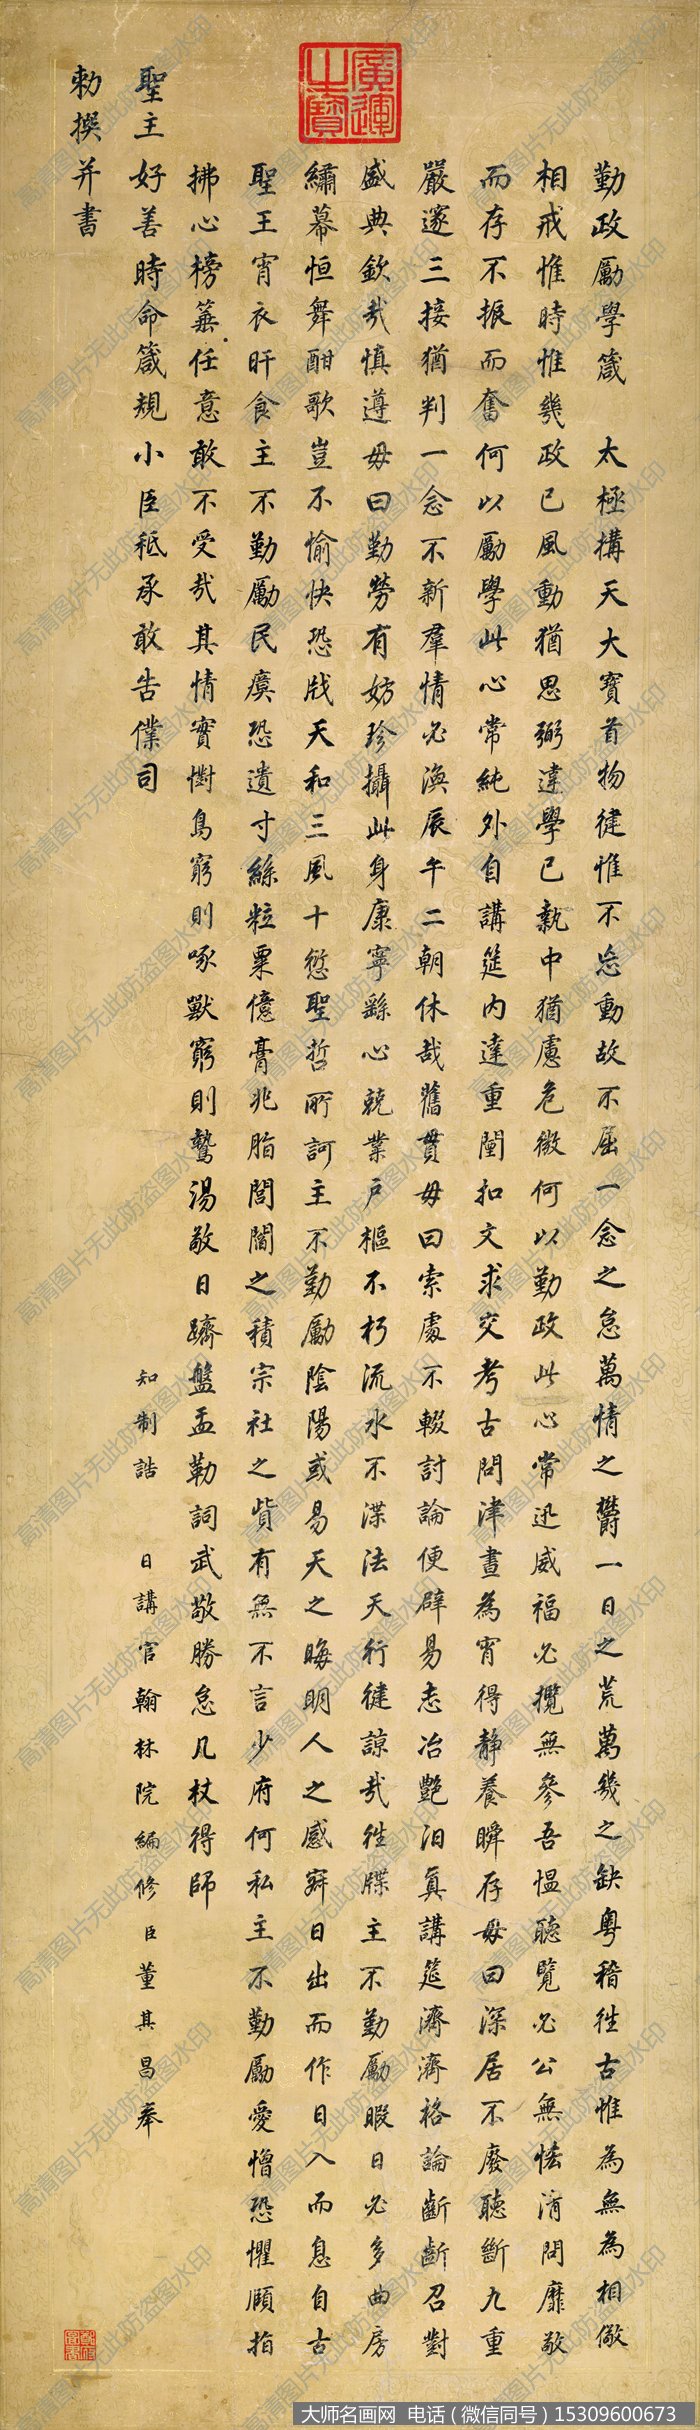 廣運之寶
勤政勵學箴　太極搆天大寶首物健惟不息動故不屈一念之怠萬情之欝一日之荒萬幾之缺粵稽往古惟為無為相儆
相戒惟時惟幾政已風動猶思弼違學已執中猶慮危微何以勤政此心常迅威福必攬無參吾愠聽覽必公無恡清問靡敢
而存不振而奮何以勵學此心常純外自講筵內達重闈扣文求交考古問津晝為宵得靜養瞬存毋曰深居不廢聽斷九重
嚴邃三接猶判一念不新羣情必渙辰午二朝休哉舊貫毋曰索處不輟討論便辟易志冶艷汩真講筵濟濟格論齗齗召對
盛典欽哉慎遵毋曰勤勞有妨珍攝此身康寧繇心兢業戶樞不朽流水不渫法天行健諒哉往牒主不勤勵暇日必多曲房
繡幕恒舞酣歌豈不愉快恐戕天和三風十愆聖哲所訶主不勤勵陰陽或易天之晦明人之感寐日出而作日入而息自古
聖王宵衣旰食主不勤勵民瘼恐遺寸絲粒粟億膏兆脂閭閻之積宗社之貲有無不言少府何私主不勤勵愛憎恐懼順指
拂心榜箠任意敢不受哉其情實懟鳥窮則啄獸窮則鷙湯敬日躋盤盂勒詞武敬勝怠几杖得師
聖主好善時命箴規小臣秪承敢告僕司
知制誥　日講官翰林院編修臣董其昌奉
勅撰并書
高清图片无此防盗图水印
大师名画网 电话（微信同号）15309600673